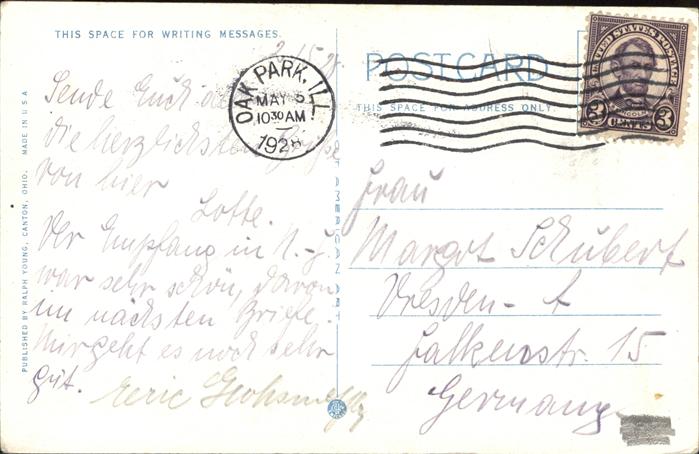 THIS SPACE FOR WRITING MESSAGES
POSTCARD
THIS SPACE FOR ADDRESS ONLY.
UNITED STATES POSTAGE
LINCOLN
3 CENTS 3
OAK PARK, ILL.
MAY 5
10 30 AM
1928
PUBLISHED BY RALPH YOUNG, CANTON, OHIO. MADE IN U.S.A.
Sende Euch
die herzlichsten Grüße
von hier
Lotte.
Der Empfang in N.-J.
war sehr schön, davon
im nächsten Briefe.
Mir geht es noch sehr
gut.
Frau
Margot Schubert
Dresden - A
Falkenstr. 15
Germany